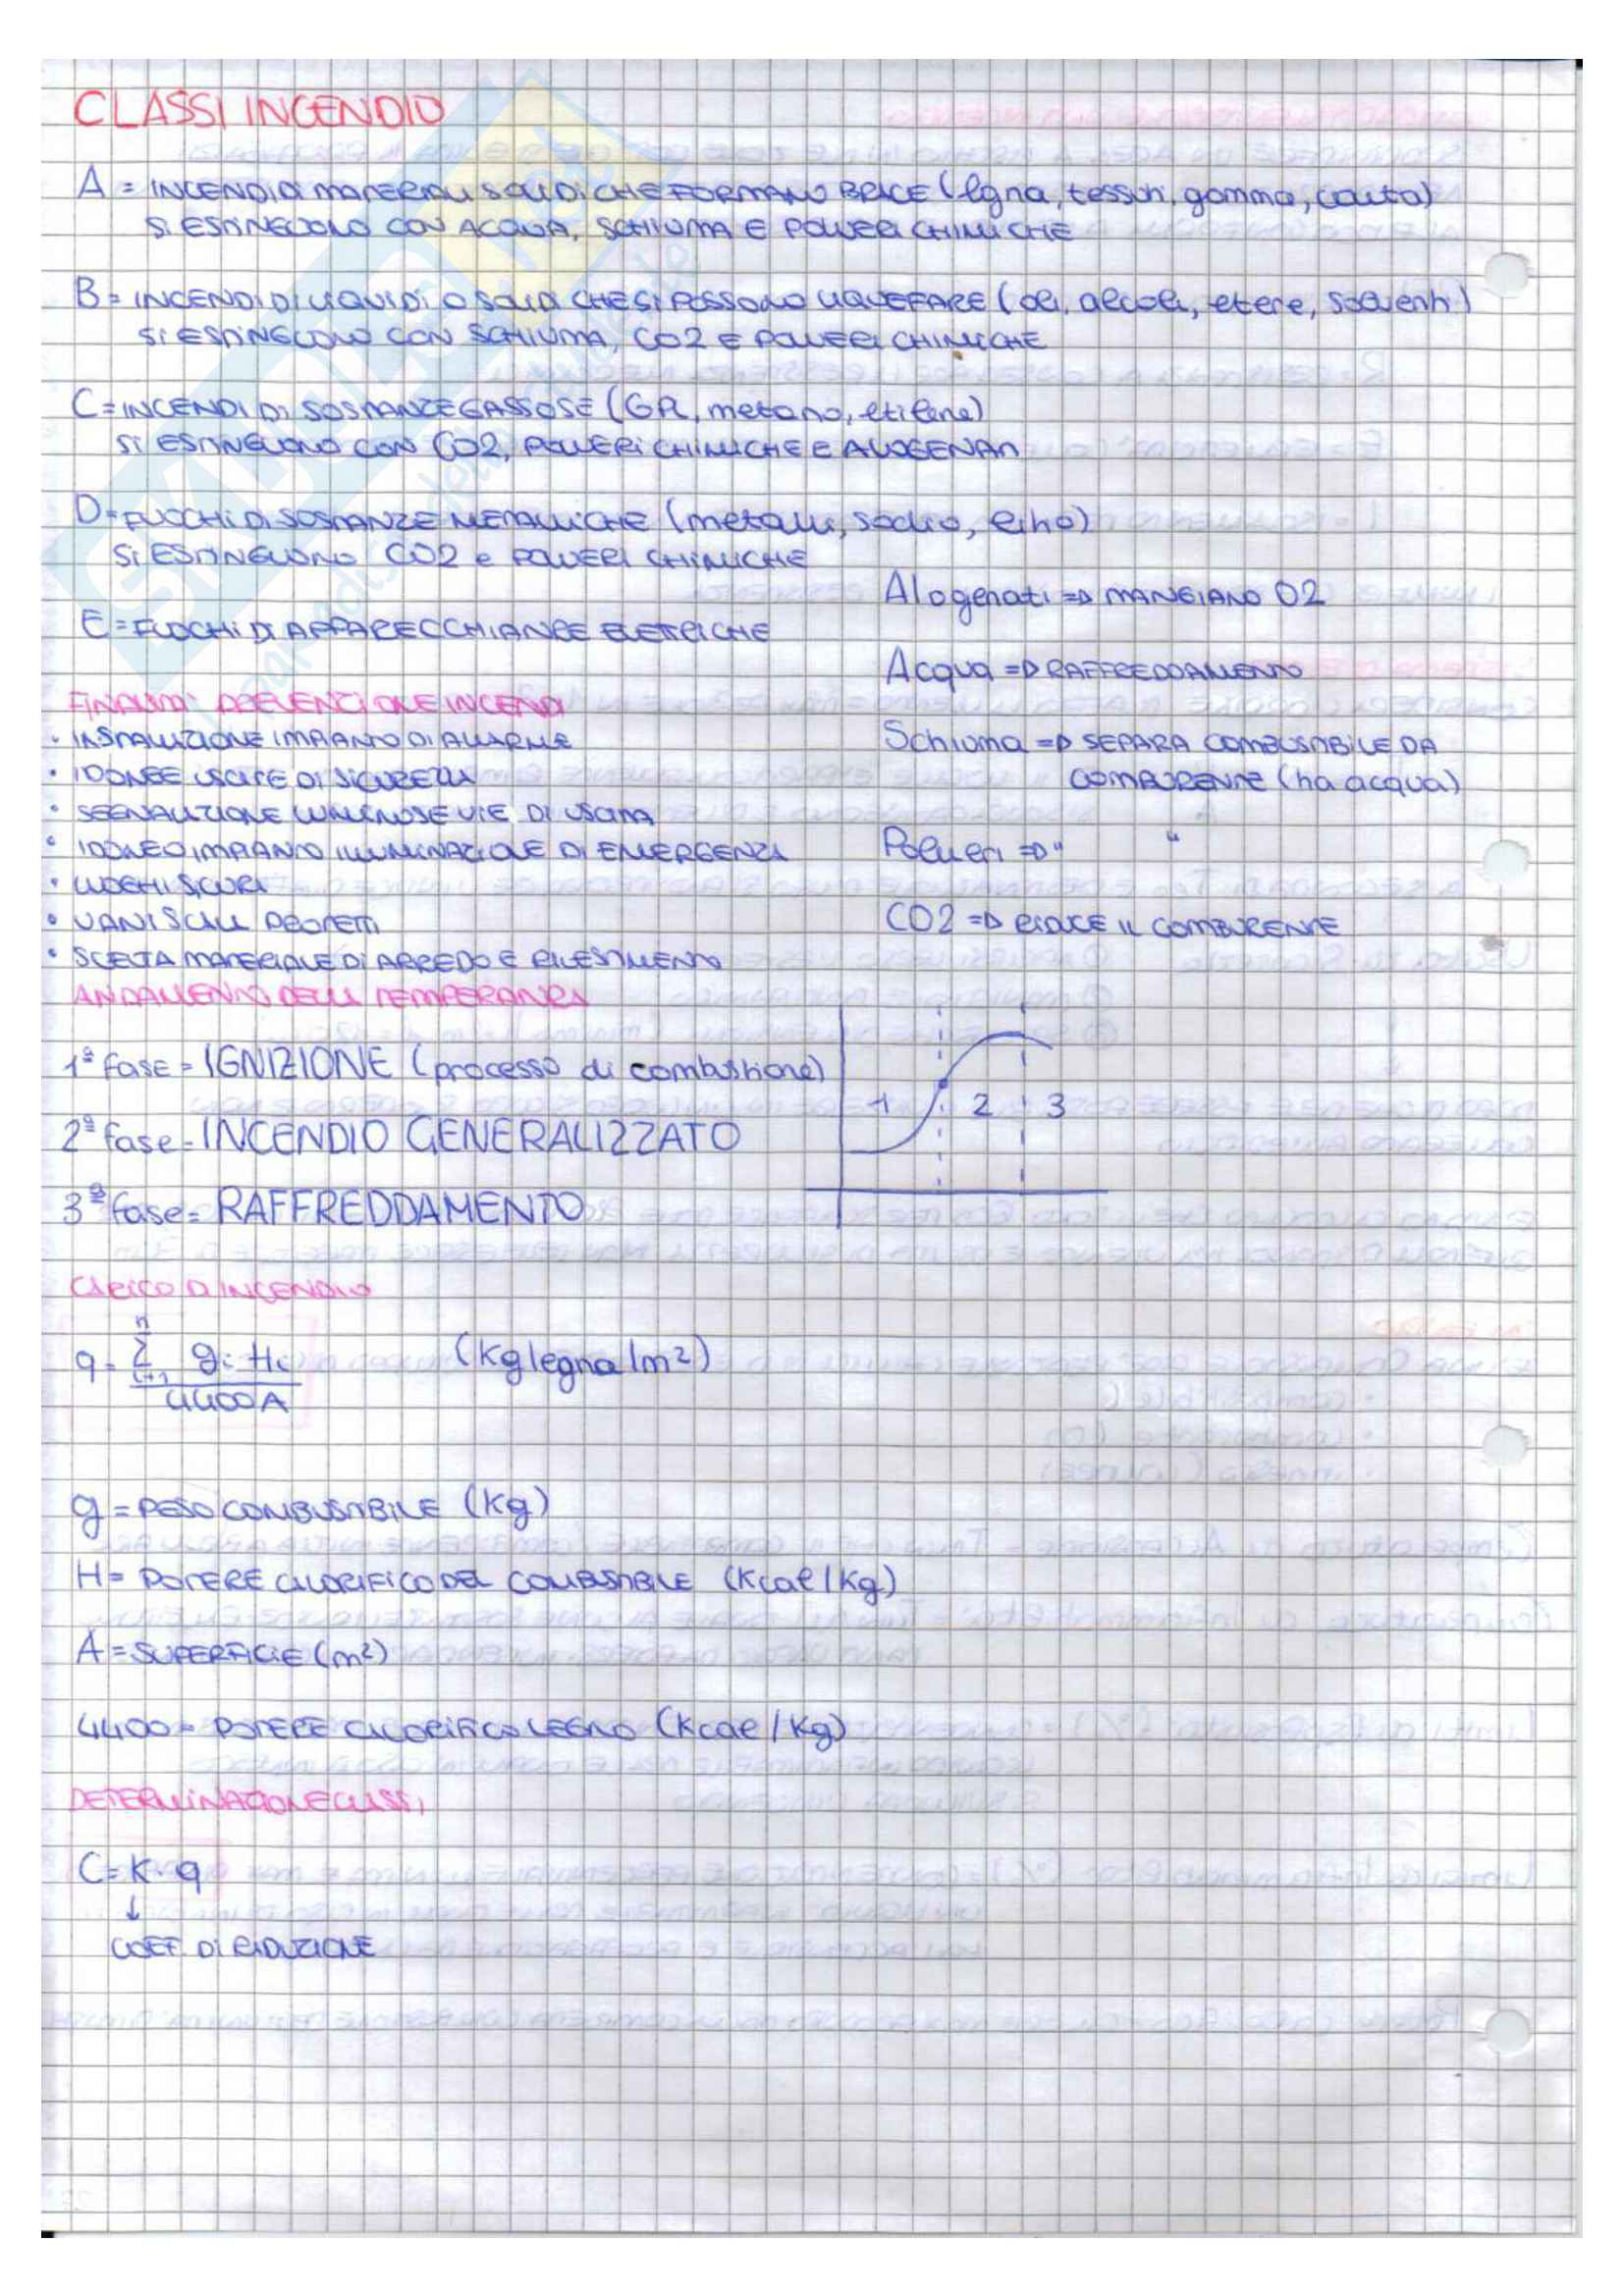 CLASSI INCENDIO
A = INCENDI DI MATERIALI SOLIDI CHE FORMANO BRACE (legna, tessuti, gomma, carta)
SI ESTINGUONO CON ACQUA, SCHIUMA E POLVERI CHIMICHE
B = INCENDI DI LIQUIDI O SOLIDI CHE SI POSSONO LIQUEFARE (oli, alcoli, etere, solventi)
SI ESTINGUONO CON SCHIUMA, CO2 E POLVERI CHIMICHE
C = INCENDI DI SOSTANZE GASSOSE (GPL, metano, etilene)
SI ESTINGUONO CON CO2, POLVERI CHIMICHE E ALOGENATI
D = FUOCHI DI SOSTANZE METALLICHE (metalli, sodio, litio)
SI ESTINGUONO CO2 e POLVERI CHIMICHE
E = FUOCHI DI APPARECCHIATURE ELETTRICHE
Alogenati => MANGIANO O2
Acqua => RAFFREDDAMENTO
Schiuma => SEPARA COMBUSTIBILE DA
COMBURENTE (ha acqua)
Polveri => " "
CO2 => RIDUCE IL COMBURENTE
FINALITA' PREVENZIONE INCENDI
• INSTALLAZIONE IMPIANTO DI ALLARME
• IDONEE USCITE DI SICUREZZA
• SEGNALAZIONE LUMINOSE VIE DI USCITA
• IDONEO IMPIANTO ILLUMINAZIONE DI EMERGENZA
• LUOGHI SICURI
• VANI SCALE PROTETTI
• SCELTA MATERIALE DI ARREDO E RIVESTIMENTO
ANDAMENTO DELLA TEMPERATURA
1ª fase = IGNIZIONE (processo di combustione)
2ª fase = INCENDIO GENERALIZZATO
3ª fase = RAFFREDDAMENTO
1 2 3
CARICO D'INCENDIO
q = Σ(i=1, n) gi Hi / 4400 A (Kg legna/m²)
g = PESO COMBUSTIBILE (Kg)
H = POTERE CALORIFICO DEL COMBUSTIBILE (Kcal/Kg)
A = SUPERFICIE (m²)
4400 = POTERE CALORIFICO LEGNO (Kcal/Kg)
DETERMINAZIONE CLASSI
C = K · q
↓
COEF. DI RIDUZIONE